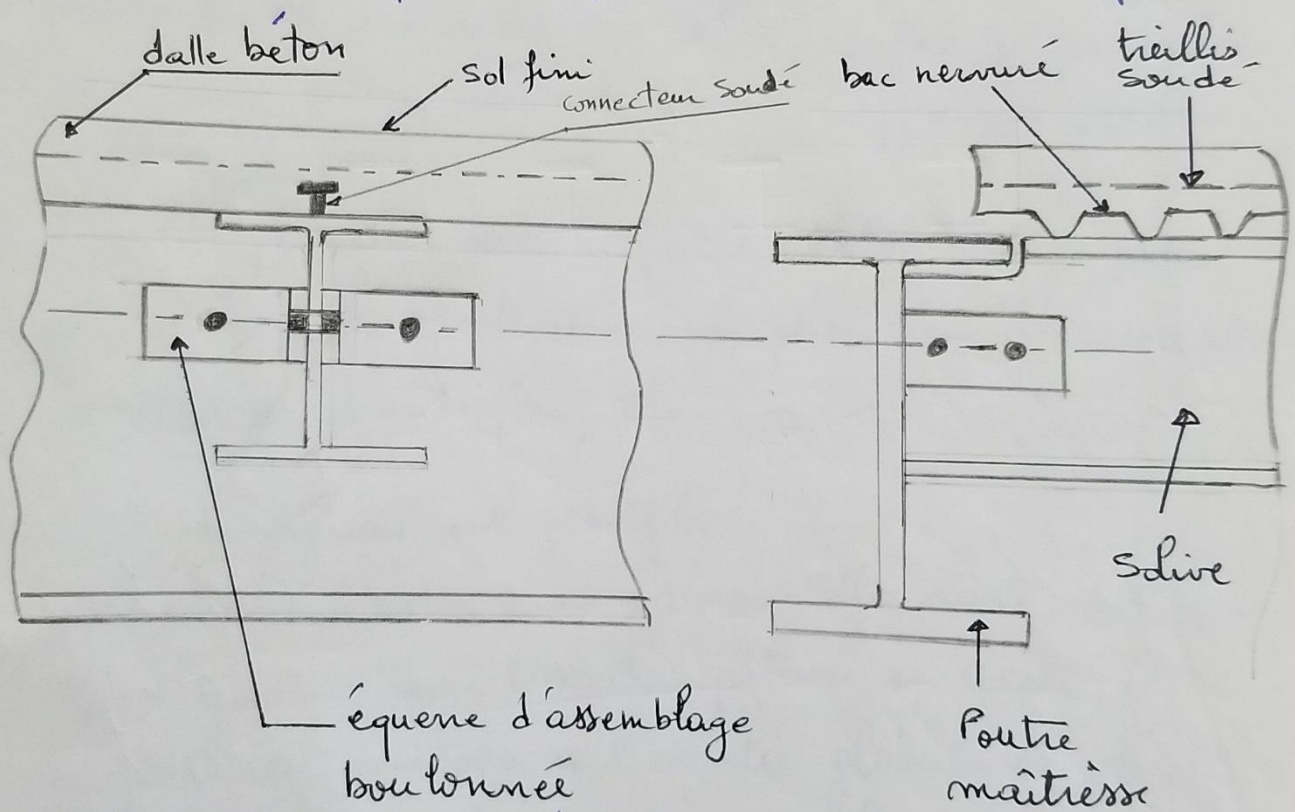 dalle béton
sol fini
connecteur soudé
bac nervuré
treillis
soudé
solive
équerre d'assemblage
boulonnée
Poutre
maîtresse